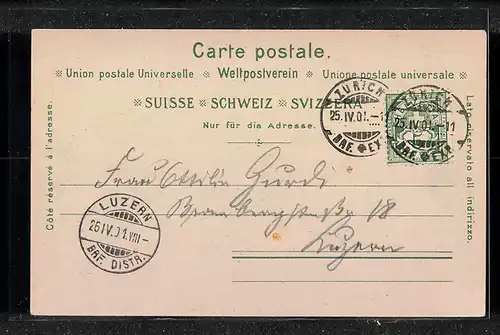 Carte postale.
※ Union postale Universelle ※ Weltpostverein ※ Unione postale universale ※
※ SUISSE ※ SCHWEIZ ※ SVIZZERA ※
Nur für die Adresse.
Côté réservé à l'adresse.
Lato riservato all indirizzo.
ZÜRICH
25.IV.01.-11
BRF. EXP.
ZÜRICH
25.IV.01.-11
BRF. EXP.
Frau Ottilie Gurdi
Brambergstrasse 18
Luzern
LUZERN
26.IV.01.VIII-
BRF. DISTR.